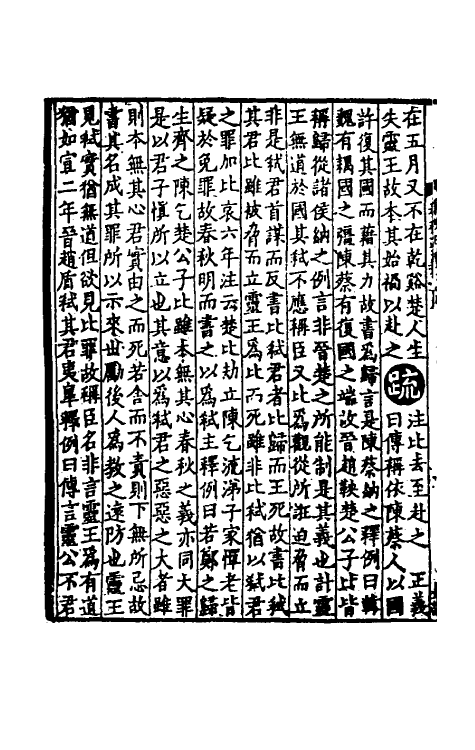 在五月又不在乾谿楚人生
失靈王故本其始禍以赴之
疏
注比去至赴之　正義
曰傳稱依陳蔡人以國
許復其國而藉其力故書爲歸言是陳蔡納之釋例曰韓
魏有耦國之彊陳蔡有復國之端故晉趙鞅楚公子比皆
稱歸從諸侯納之例言非晉楚之所能制是其義也計靈
王無道於國其弒不應稱臣又比爲觀從所誑迫脅而立
非是弒君首謀而反書比弒君者比歸而王死故書比弒
其君比雖被脅而立靈王爲比而死雖非比弒猶以弒君
之罪加比哀六年注云楚比劫立陳乞流涕子家憚老皆
疑於免罪故春秋明而書之以爲弒主釋例曰若鄭之歸
生齊之陳乞楚公子比雖本無其心春秋之義亦同大罪
是以君子慎所以立也其意以爲弒君之惡惡之大者雖
則本無其心君實由之而死若舍而不責則下無所忌故
書其名成其罪所以示來世勵後人爲教之遠防也靈王
見弒實猶無道但欲見比罪故稱臣名非言靈王爲有道
猶如宣二年晉趙盾弒其君夷皐釋例曰傳言靈公不君